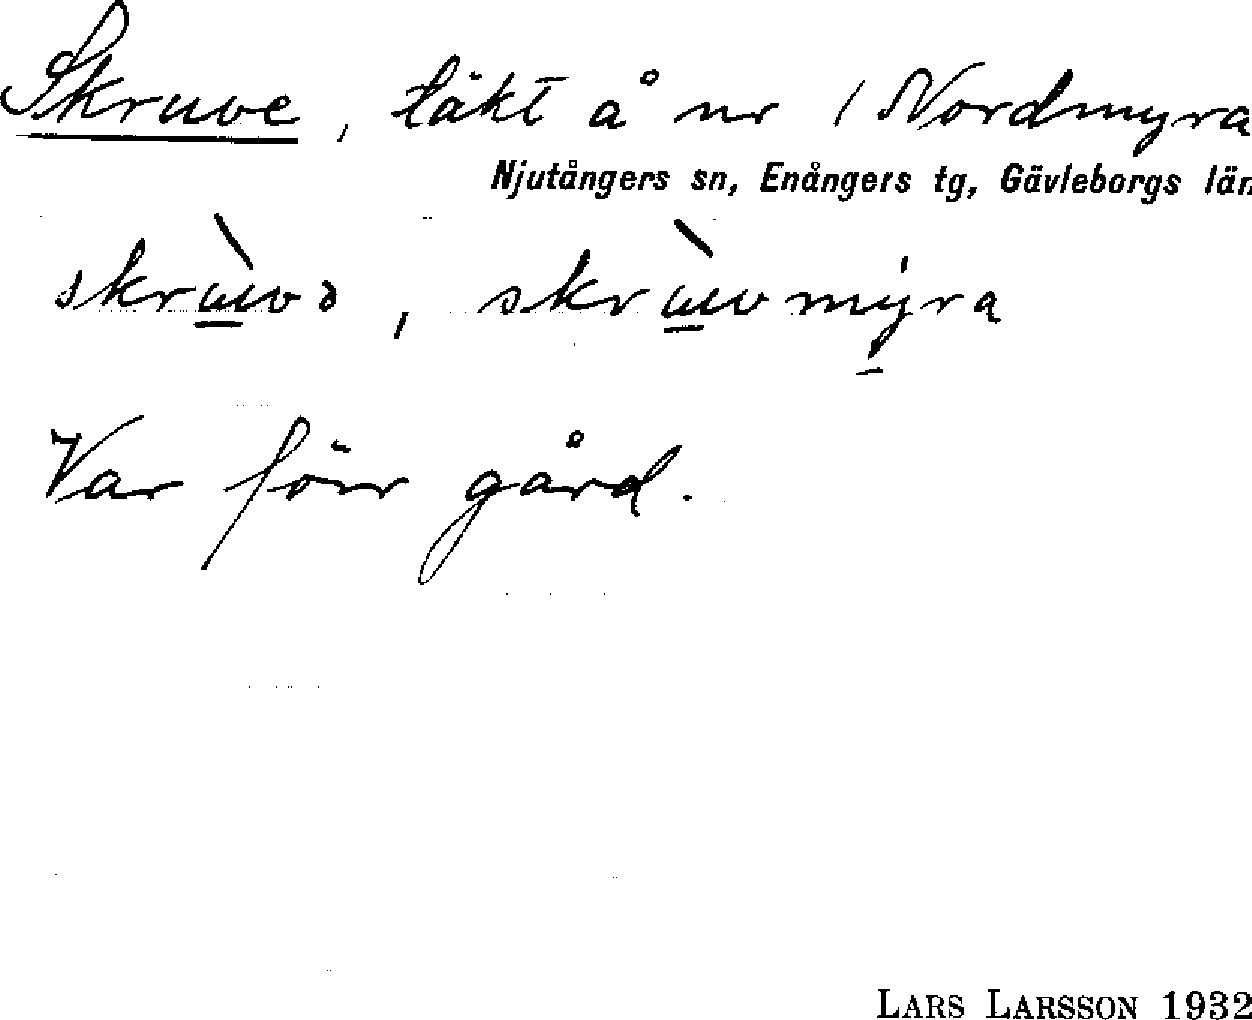 Skruve, täkt å nr 1 Nordmyra
Njutångers sn, Enångers tg, Gävleborgs län
skrùvə, skrùvmýra
Var förr gård.
LARS LARSSON 1932